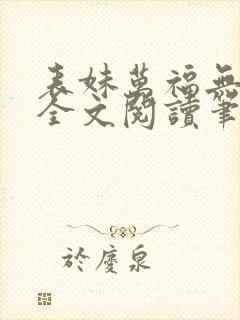 表妹萬福無
全文閱讀筆
於慶泉